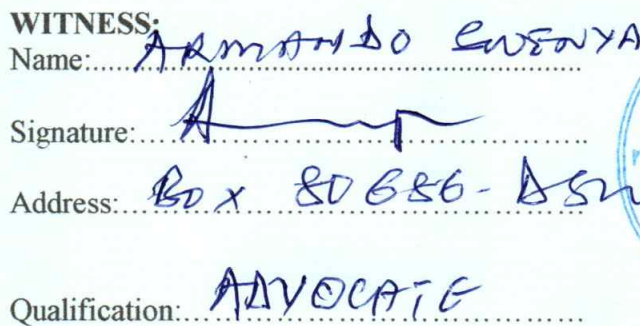 WITNESS:
Name: ARMANDO SWENYA
Signature:
Address: BOX 80686-DSM
Qualification: ADVOCATE